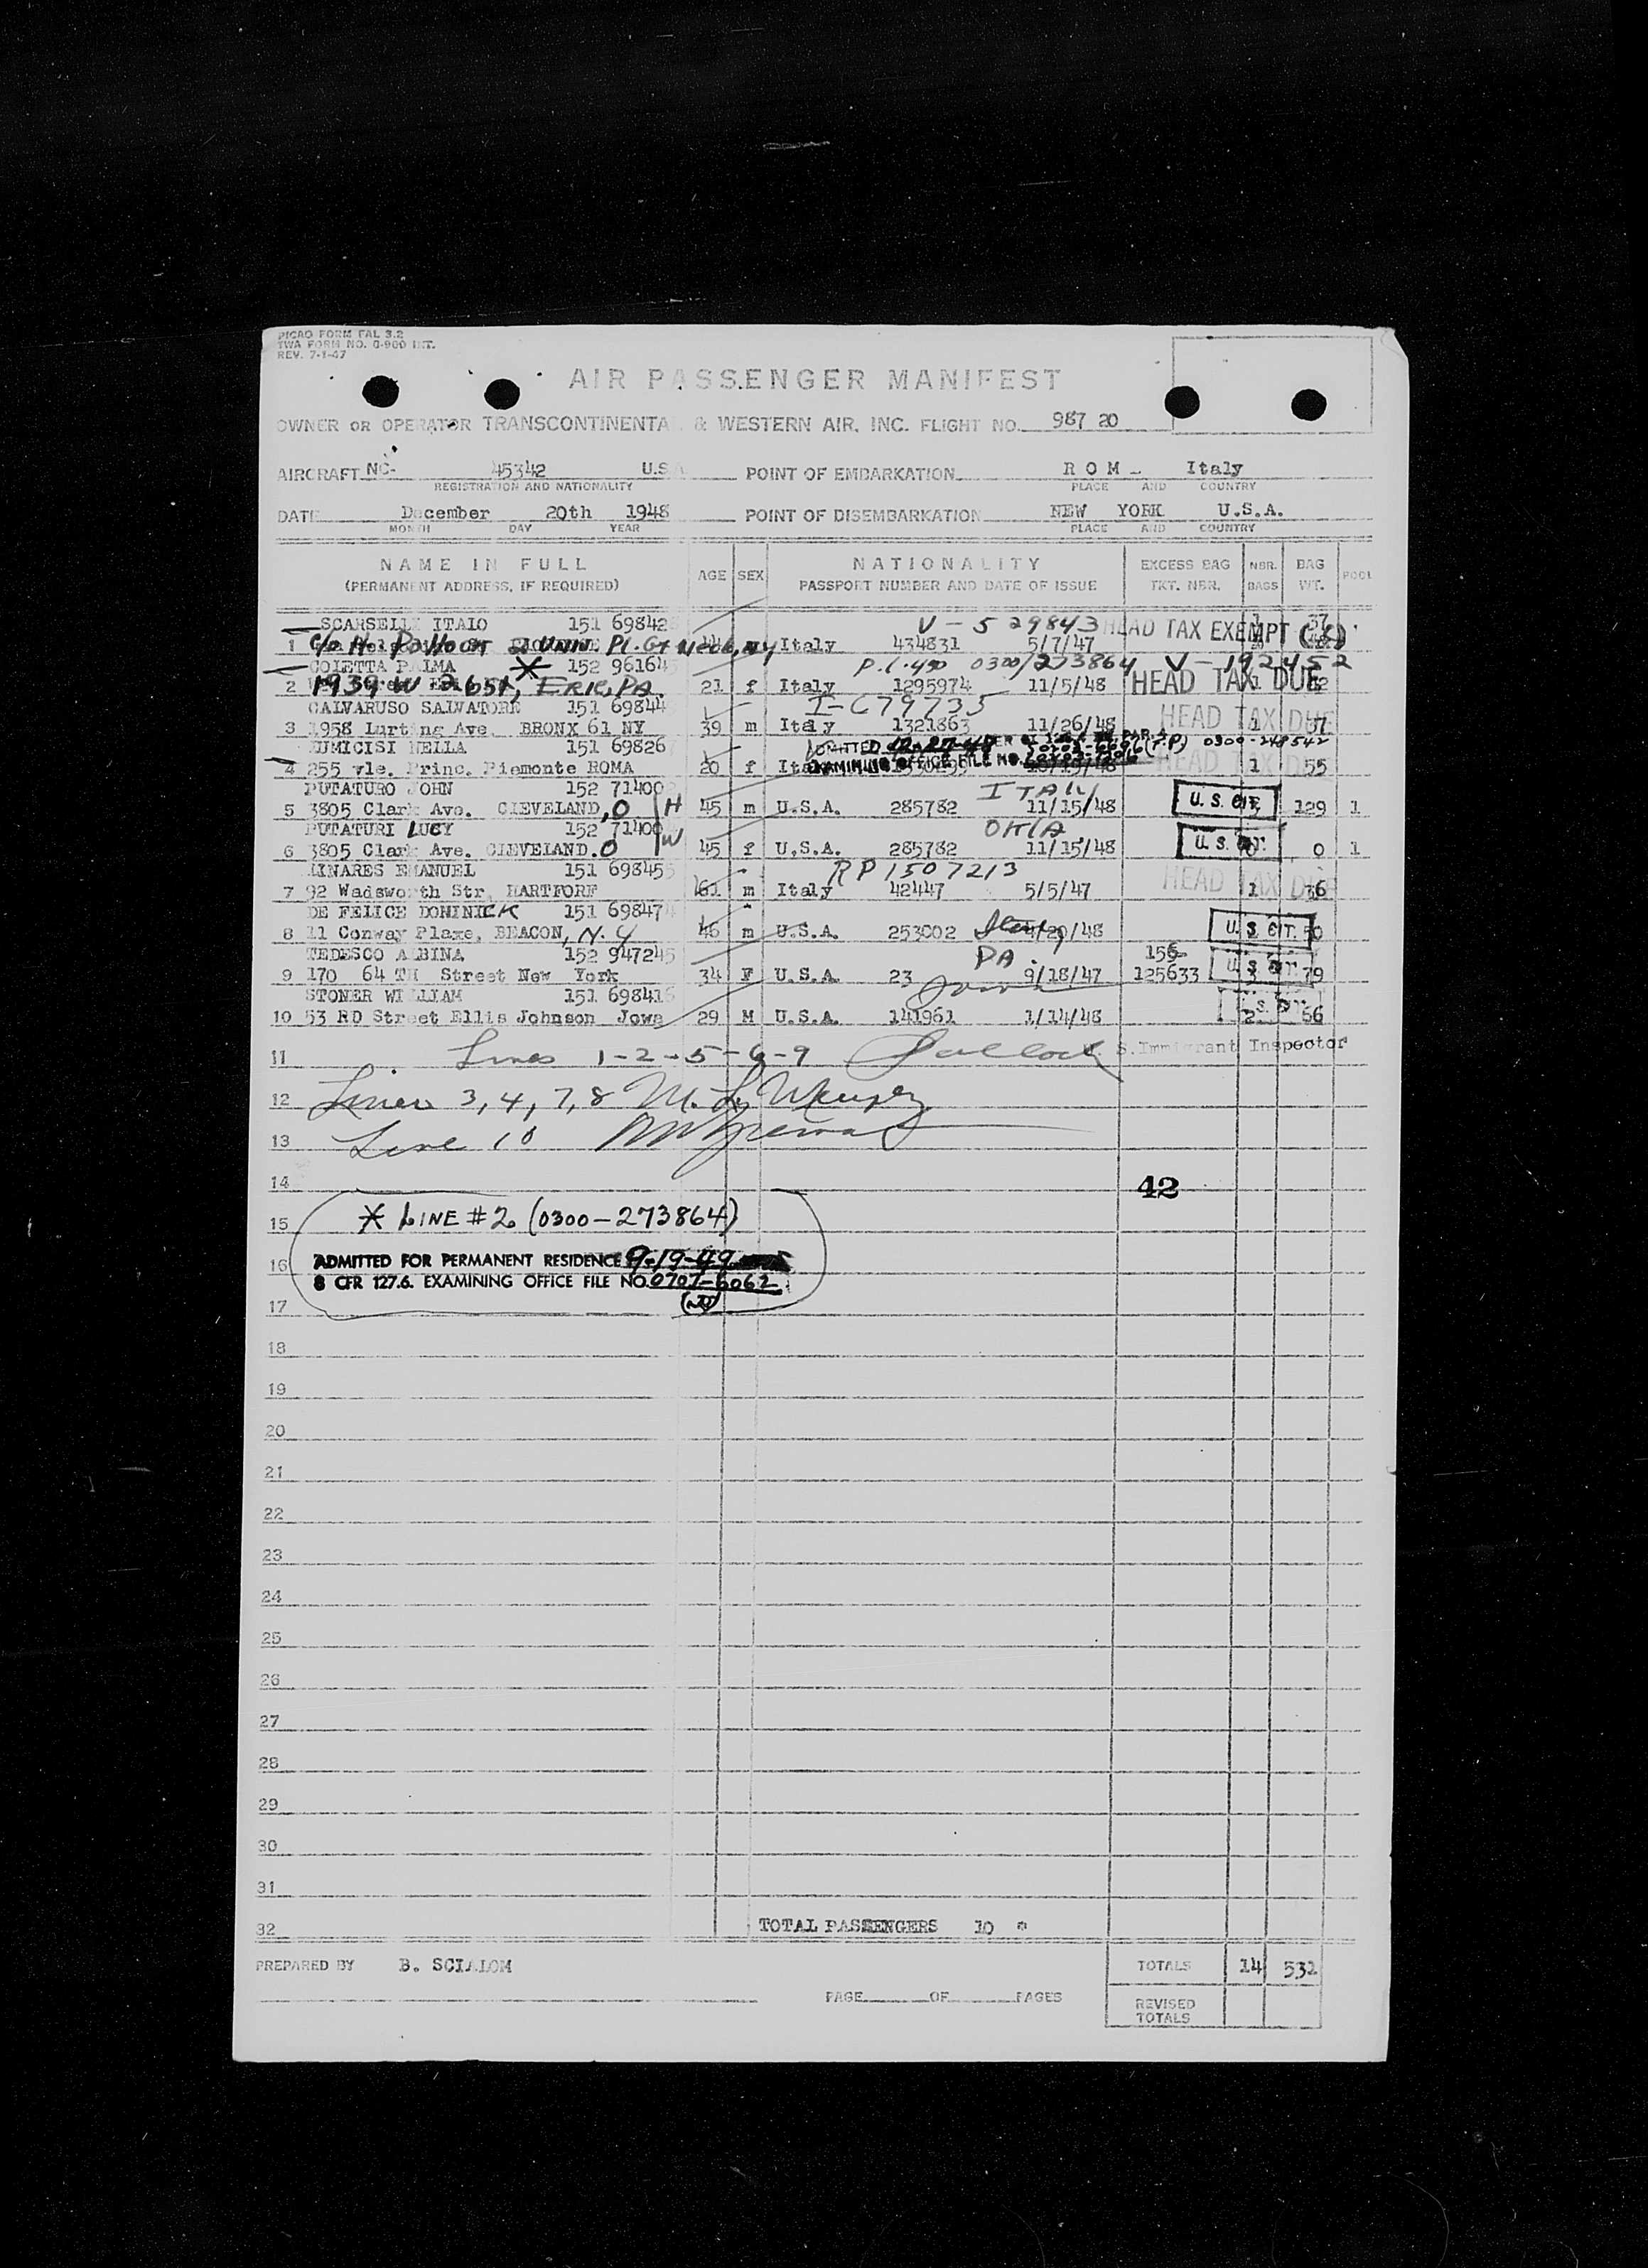 PICAO FORM FAL 3.2
TWA FORM NO. 0-900 INT.
REV. 7-1-47
AIR PASSENGER MANIFEST
OWNER OR OPERATOR TRANSCONTINENTAL & WESTERN AIR, INC. FLIGHT NO. 987 20
AIRCRAFT NC- 45342 U.S. POINT OF EMBARKATION R O M Italy
REGISTRATION AND NATIONALITY PLACE AND COUNTRY
DATE December 20th 1948 POINT OF DISEMBARKATION NEW YORK U.S.A.
MONTH DAY YEAR PLACE AND COUNTRY
NAME IN FULL AGE SEX NATIONALITY EXCESS BAG NBR. BAG POOL
(PERMANENT ADDRESS, IF REQUIRED) PASSPORT NUMBER AND DATE OF ISSUE TKT. NBR. BAGS WT.
SCARSELLI ITALO 151 69842 V-529843 HEAD TAX EXEMPT
1 c/o H. Pl. NY Italy 434831 5/7/47
COLETTA PALMA * 152 96164 P.L. 490 0300/273864 V-192452
2 1939 W 26 St, ERIE, PA. 21 f Italy 1295974 11/5/48 HEAD TAX DUE
CALVARUSO SALVATORE 151 69844 I-679735
3 1958 Lurting Ave. BRONX 61 NY 39 m Italy 1321863 11/26/48 HEAD TAX DUE 1 37
NELLA 151 69826 ADMITTED 12-27-48 PER 0300-248542
4 255 vle. Princ. Piemonte ROMA 20 f EXAMINING OFFICE FILE NO. HEAD TAX DUE 1 55
PUTATURO JOHN 152 71400 ITALY
5 3805 Clark Ave. CLEVELAND, O H 45 m U.S.A. 285782 11/15/48 U.S. CIT. 129 1
PUTATURI LUCY 152 71400 OKLA
6 3805 Clark Ave. CLEVELAND. O W 45 f U.S.A. 285782 11/15/48 U.S. CIT. 0 0 1
LINARES EMANUEL 151 69845 RP 1507213
7 92 Wadsworth Str. HARTFORF 61 m Italy 42447 5/5/47 HEAD TAX DUE 1 36
DE FELICE DOMINICK 151 69847
8 11 Conway Plaxe, BEACON, N.Y 46 m U.S.A. 253002 Italy /20/48 U.S. CIT.
TEDESCO ALBINA 152 94724 PA. 156
9 170 64 TH Street New York 34 F U.S.A. 23 9/18/47 125633 U.S. CIT. 3 79
STONER WILLIAM 151 69841 Iowa
10 53 RD Street Ellis Johnson Jowa 29 M U.S.A. 141961 1/14/48 2 66
11 Lines 1-2-5-6-9 S. Immigrant Inspector
12 Lines 3, 4, 7, 8
13 Line 10
14 42
15 * LINE #2 (0300-273864)
16 ADMITTED FOR PERMANENT RESIDENCE 9-19-49
8 CFR 127.6. EXAMINING OFFICE FILE NO. 0707-6062
17
18
19
20
21
22
23
24
25
26
27
28
29
30
31
32 TOTAL PASSENGERS 10 *
PREPARED BY B. SCIALOM TOTALS 14 532
PAGE OF PAGES REVISED
TOTALS